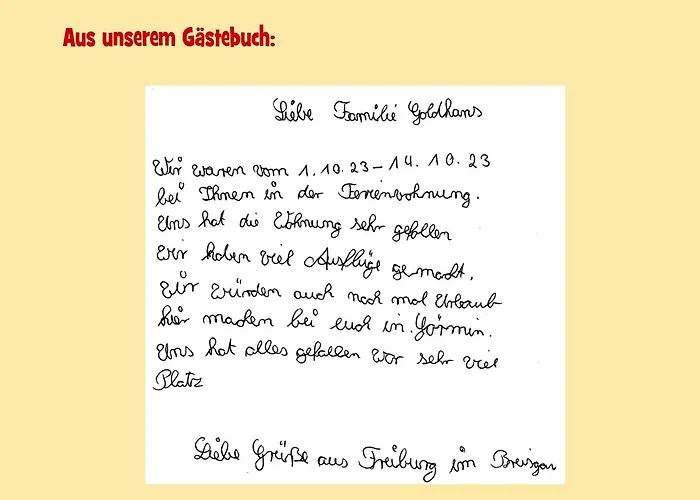 Aus unserem Gästebuch:
Liebe Familie Goldhans
Wir waren vom 1.10.23 – 14.10.23
bei Ihnen in der Ferienwohnung.
Uns hat die Wohnung sehr gefallen
Wir haben viel Ausflüge gemacht.
Wir würden auch noch mal Urlaub
hier machen bei euch in Görmin.
Uns hat alles gefallen War sehr viel
Platz
Liebe Grüße aus Freiburg im Breisgau